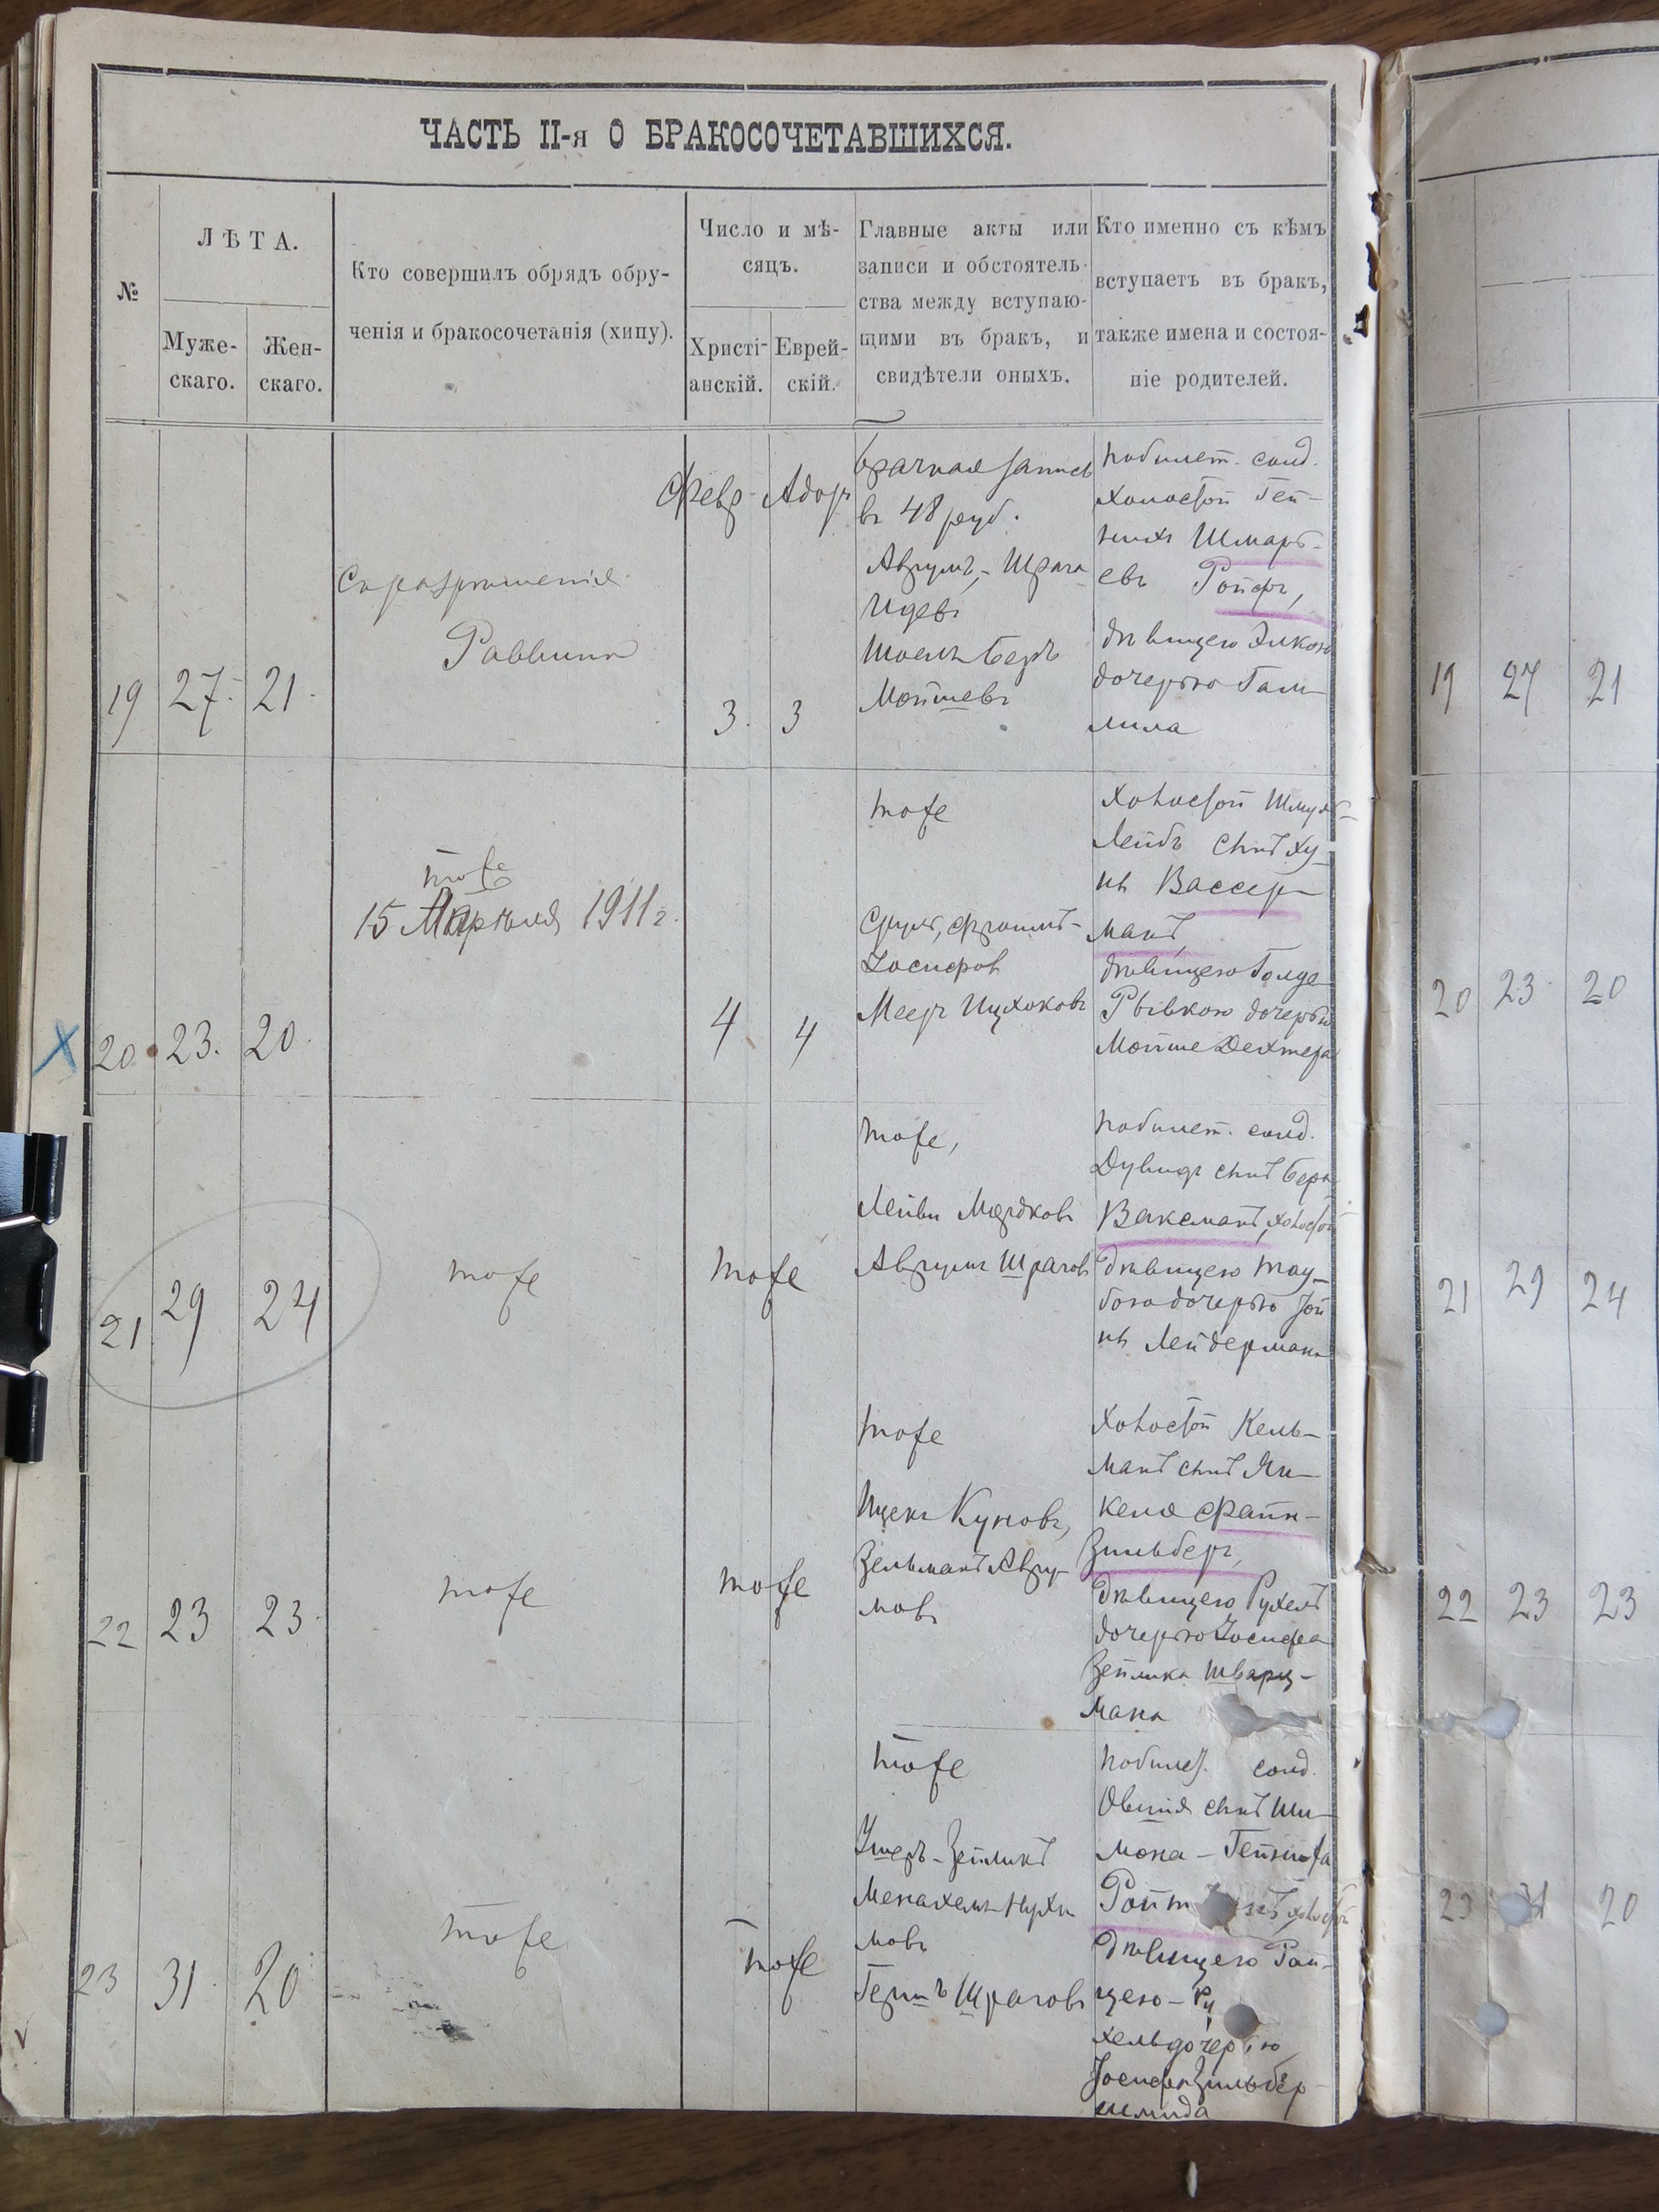 ЧАСТЬ II-я О БРАКОСОЧЕТАВШИХСЯ.
№
ЛѢТА.
Муже-
скаго.
Жен-
скаго.
Кто совершилъ обрядъ обру-
ченія и бракосочетанія (хипу).
Число и мѣ-
сяцъ.
Христі-
анскій.
Еврей-
скій.
Главные акты или
записи и обстоятель-
ства между вступаю-
щими въ бракъ, и
свидѣтели оныхъ.
Кто именно съ кѣмъ
вступаетъ въ бракъ,
также имена и состоя-
ніе родителей.
19
27.
21.
Съ разрешенія
Раввина
Февр.
3.
Адоръ
3
Брачная запись
въ 48 руб.
Аврумъ-Шрага
Идевъ
Шоелъ Беръ
Мойшевъ
по билет. солд.
холостой Гей-
нихъ Шмарь-
евъ Ройфъ,
дѣвицею Элкою
дочерью Гам-
лила
20.
23.
20.
тоже
15 Апрѣля 1911 г.
4
4
тоже
Сруль, Фроимъ-
Іосифов
Меер Ицхоковъ
Холостой Шмуль-
Лейбъ сынъ Ху-
нъ Вассер-
манъ,
дѣвицею Голде
Рывкою дочерью
Мойше Дехтера
21
29
24
тоже
тоже
тоже,
Лейви Мордковъ
Аврумъ Шрагов
по билет. солд.
Дувидъ сынъ Берка
Ваксманъ, холостой
дѣвицею Тау-
бою дочерью Іой
нъ Лейдермана
22
23
23.
тоже
тоже
тоже
Ицекъ Куновъ,
Зельманъ Авру-
мовъ
Холостой Кель-
манъ сынъ Ян-
келя Файн-
зильберъ,
дѣвицею Рухелъ
дочерью Іосифа
Зейлика Шварц-
мана
23
31.
20
тоже
тоже
тоже
Ушеръ-Зейликъ
Менахемъ Нухи
мовъ
Гершъ Шраговъ
по билет. солд.
Овшія сынъ Ши-
мона-
Ройт нъ холостой
дѣвицею Рой-
цею-Ру
хель дочерью
Іосифа Зильбер-
шмида
19
27
21
20
23
20
21
29
24
22
23
23
23
20